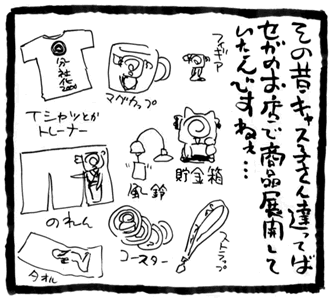 その昔キャス子さん達ってば
セガのお店で商品展開して
いたんですねぇ…
フィギア
マグカップ
分社化
2000
Tシャツとか
トレーナー
貯金箱
風鈴
のれん
ストラップ
コースター
タオル